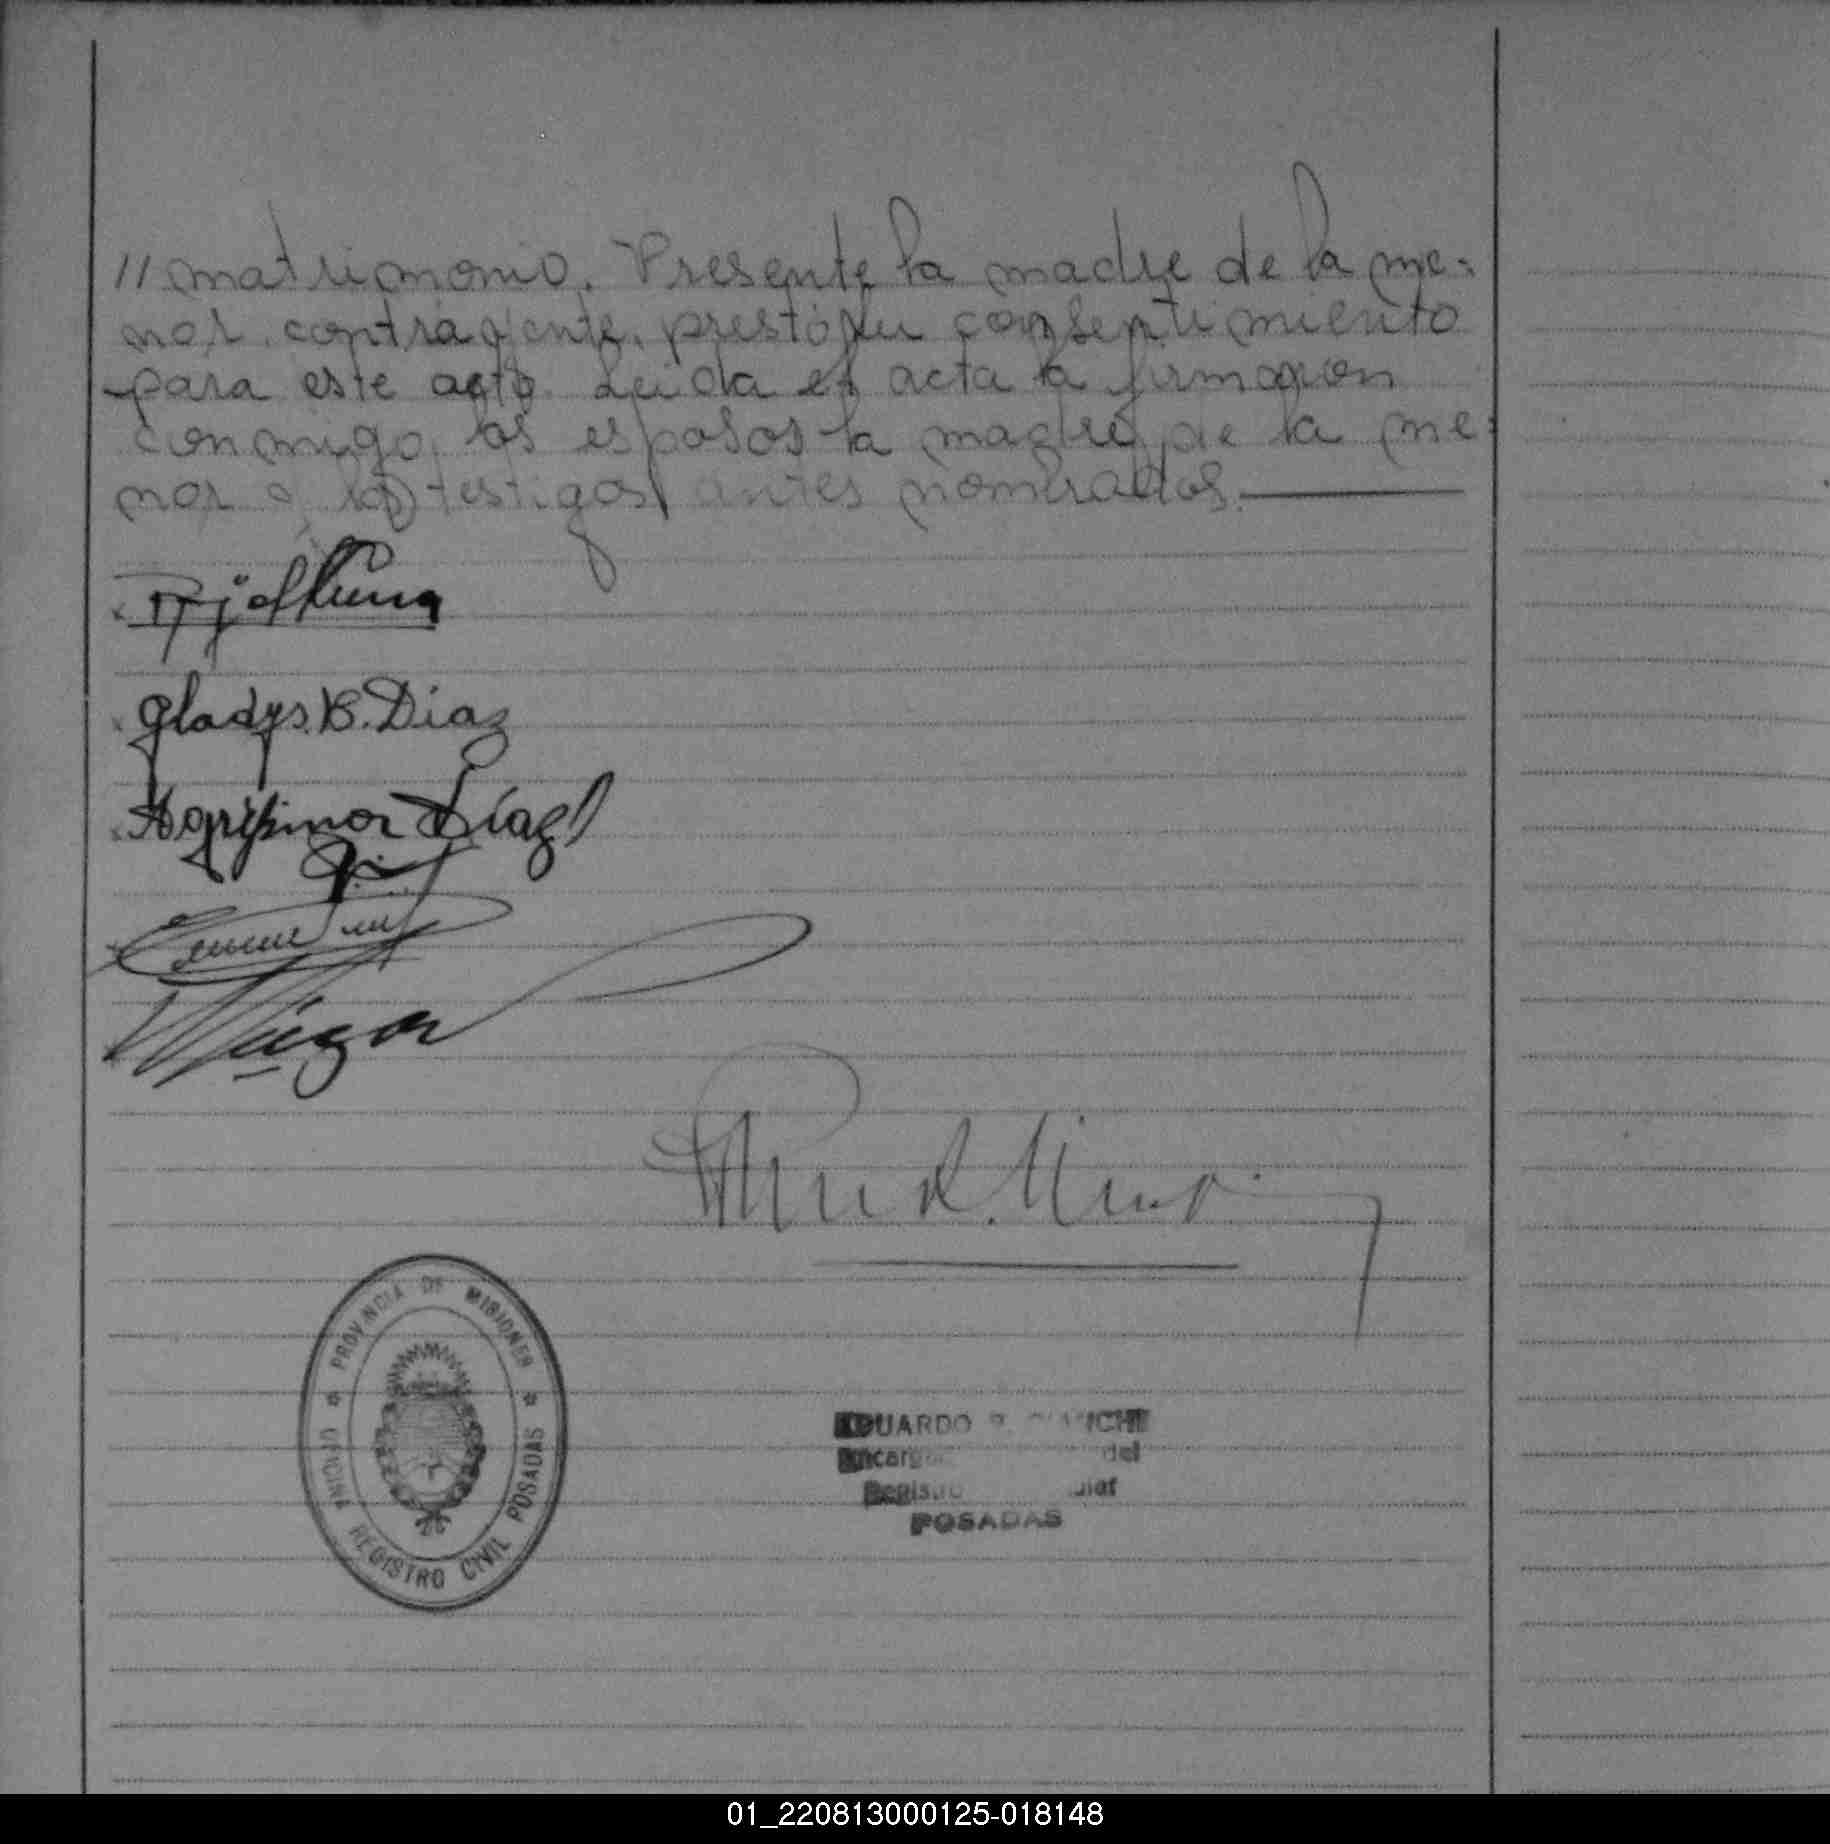 // matrimonio. Presente la madre de la me-
nor contrayente, prestó su consentimiento
para este acto. Leída el acta la firmaron
conmigo, los esposos la madre, de la me-
nor y los testigos antes nombrados.
Gladys B. Díaz
Agripina Díaz
PROVINCIA DE MISIONES
OFICINA REGISTRO CIVIL POSADAS
EDUARDO
del
Registro
POSADAS
01_220813000125-018148